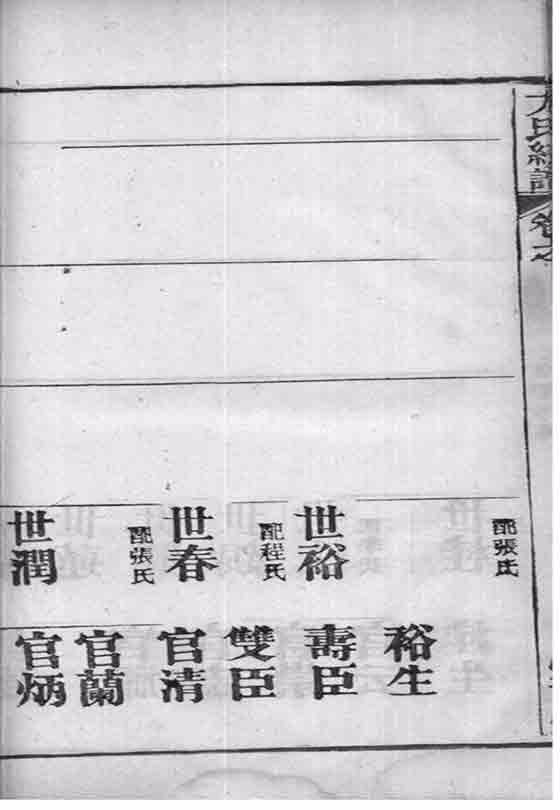 氏統譜
配張氏
裕生
世裕
配程氏
壽臣
雙臣
世春
配張氏
官清
官蘭
世潤
官炳